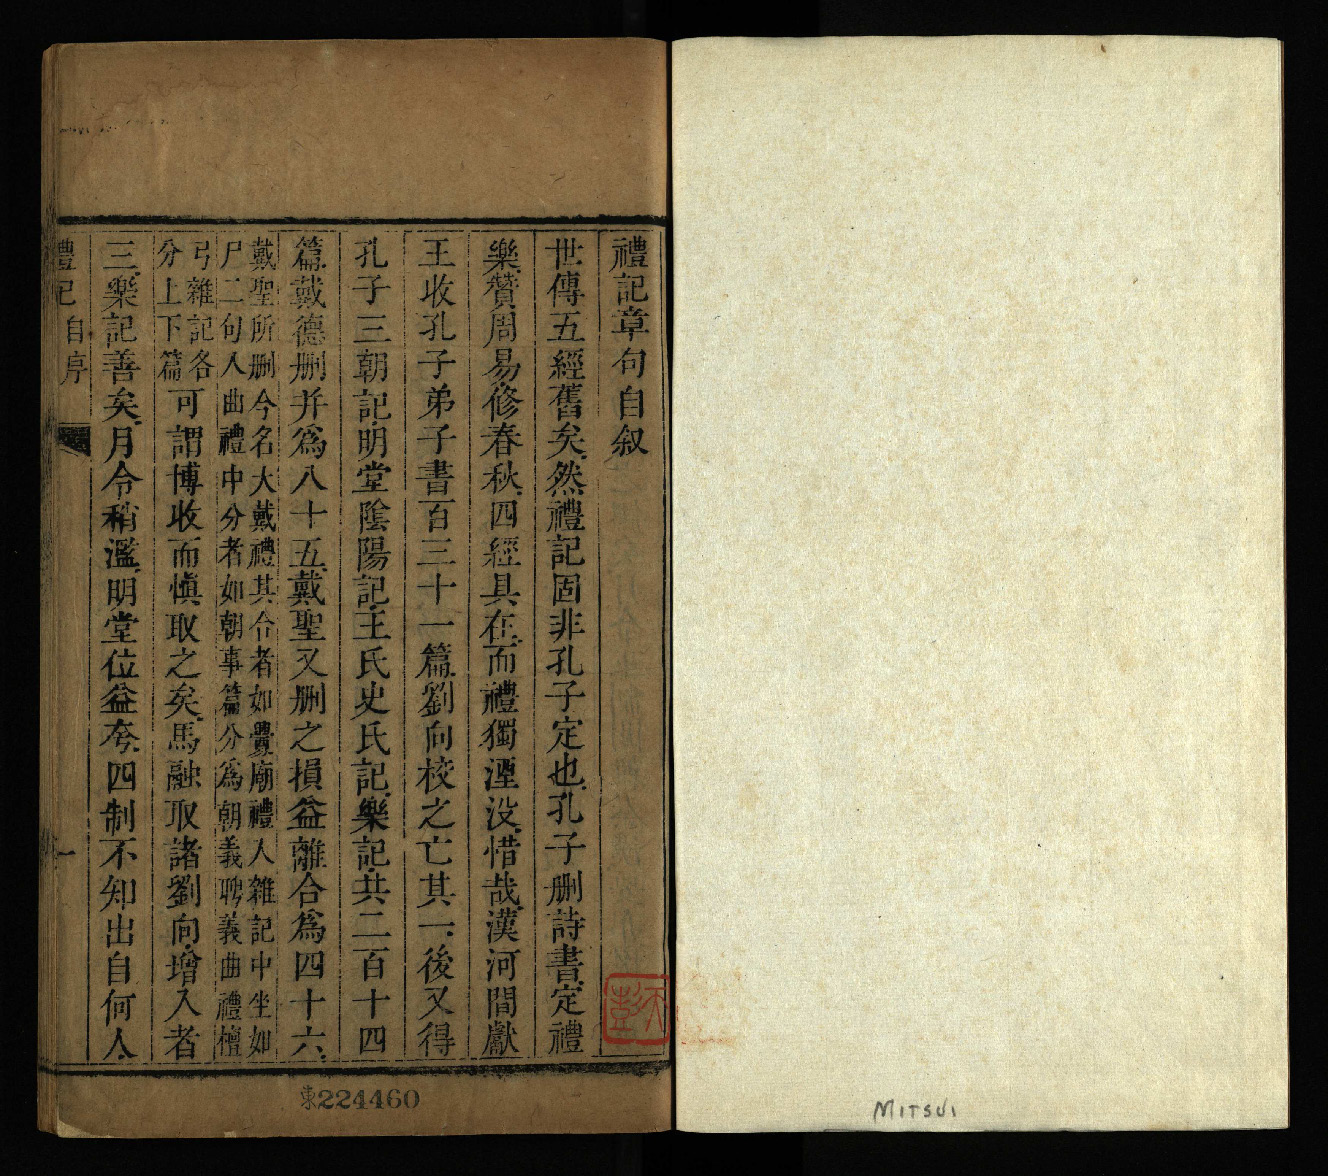 禮記章句自叙
世傳五經舊矣然禮記固非孔子定也孔子删詩書定禮
樂贊周易修春秋四經具在而禮獨湮没惜哉漢河間獻
王收孔子弟子書百三十一篇劉向校之亡其一後又得
孔子三朝記明堂陰陽記王氏史氏記樂記共二百十四
篇戴德删并爲八十五戴聖又删之損益離合爲四十六
戴聖所删今名大戴禮其合者如釁廟禮入雜記中坐如
尸二句入曲禮中分者如朝事篇分爲朝義聘義曲禮檀
弓雜記各
分上下篇
可謂博收而慎取之矣馬融取諸劉向增入者
三樂記善矣月令稍濫明堂位益夸四制不知出自何人
禮記 自序
一
東224460
MITSUI